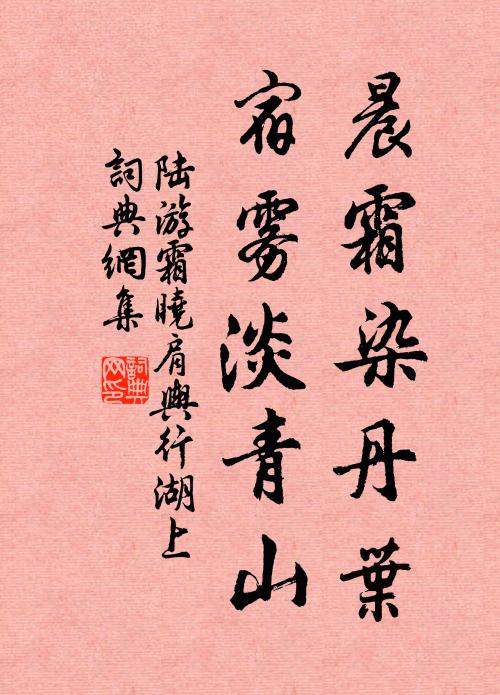 晨霜染丹葉
宿雾淡青山
陆游霜曉肩輿行湖上
詞典網集
詞典网印